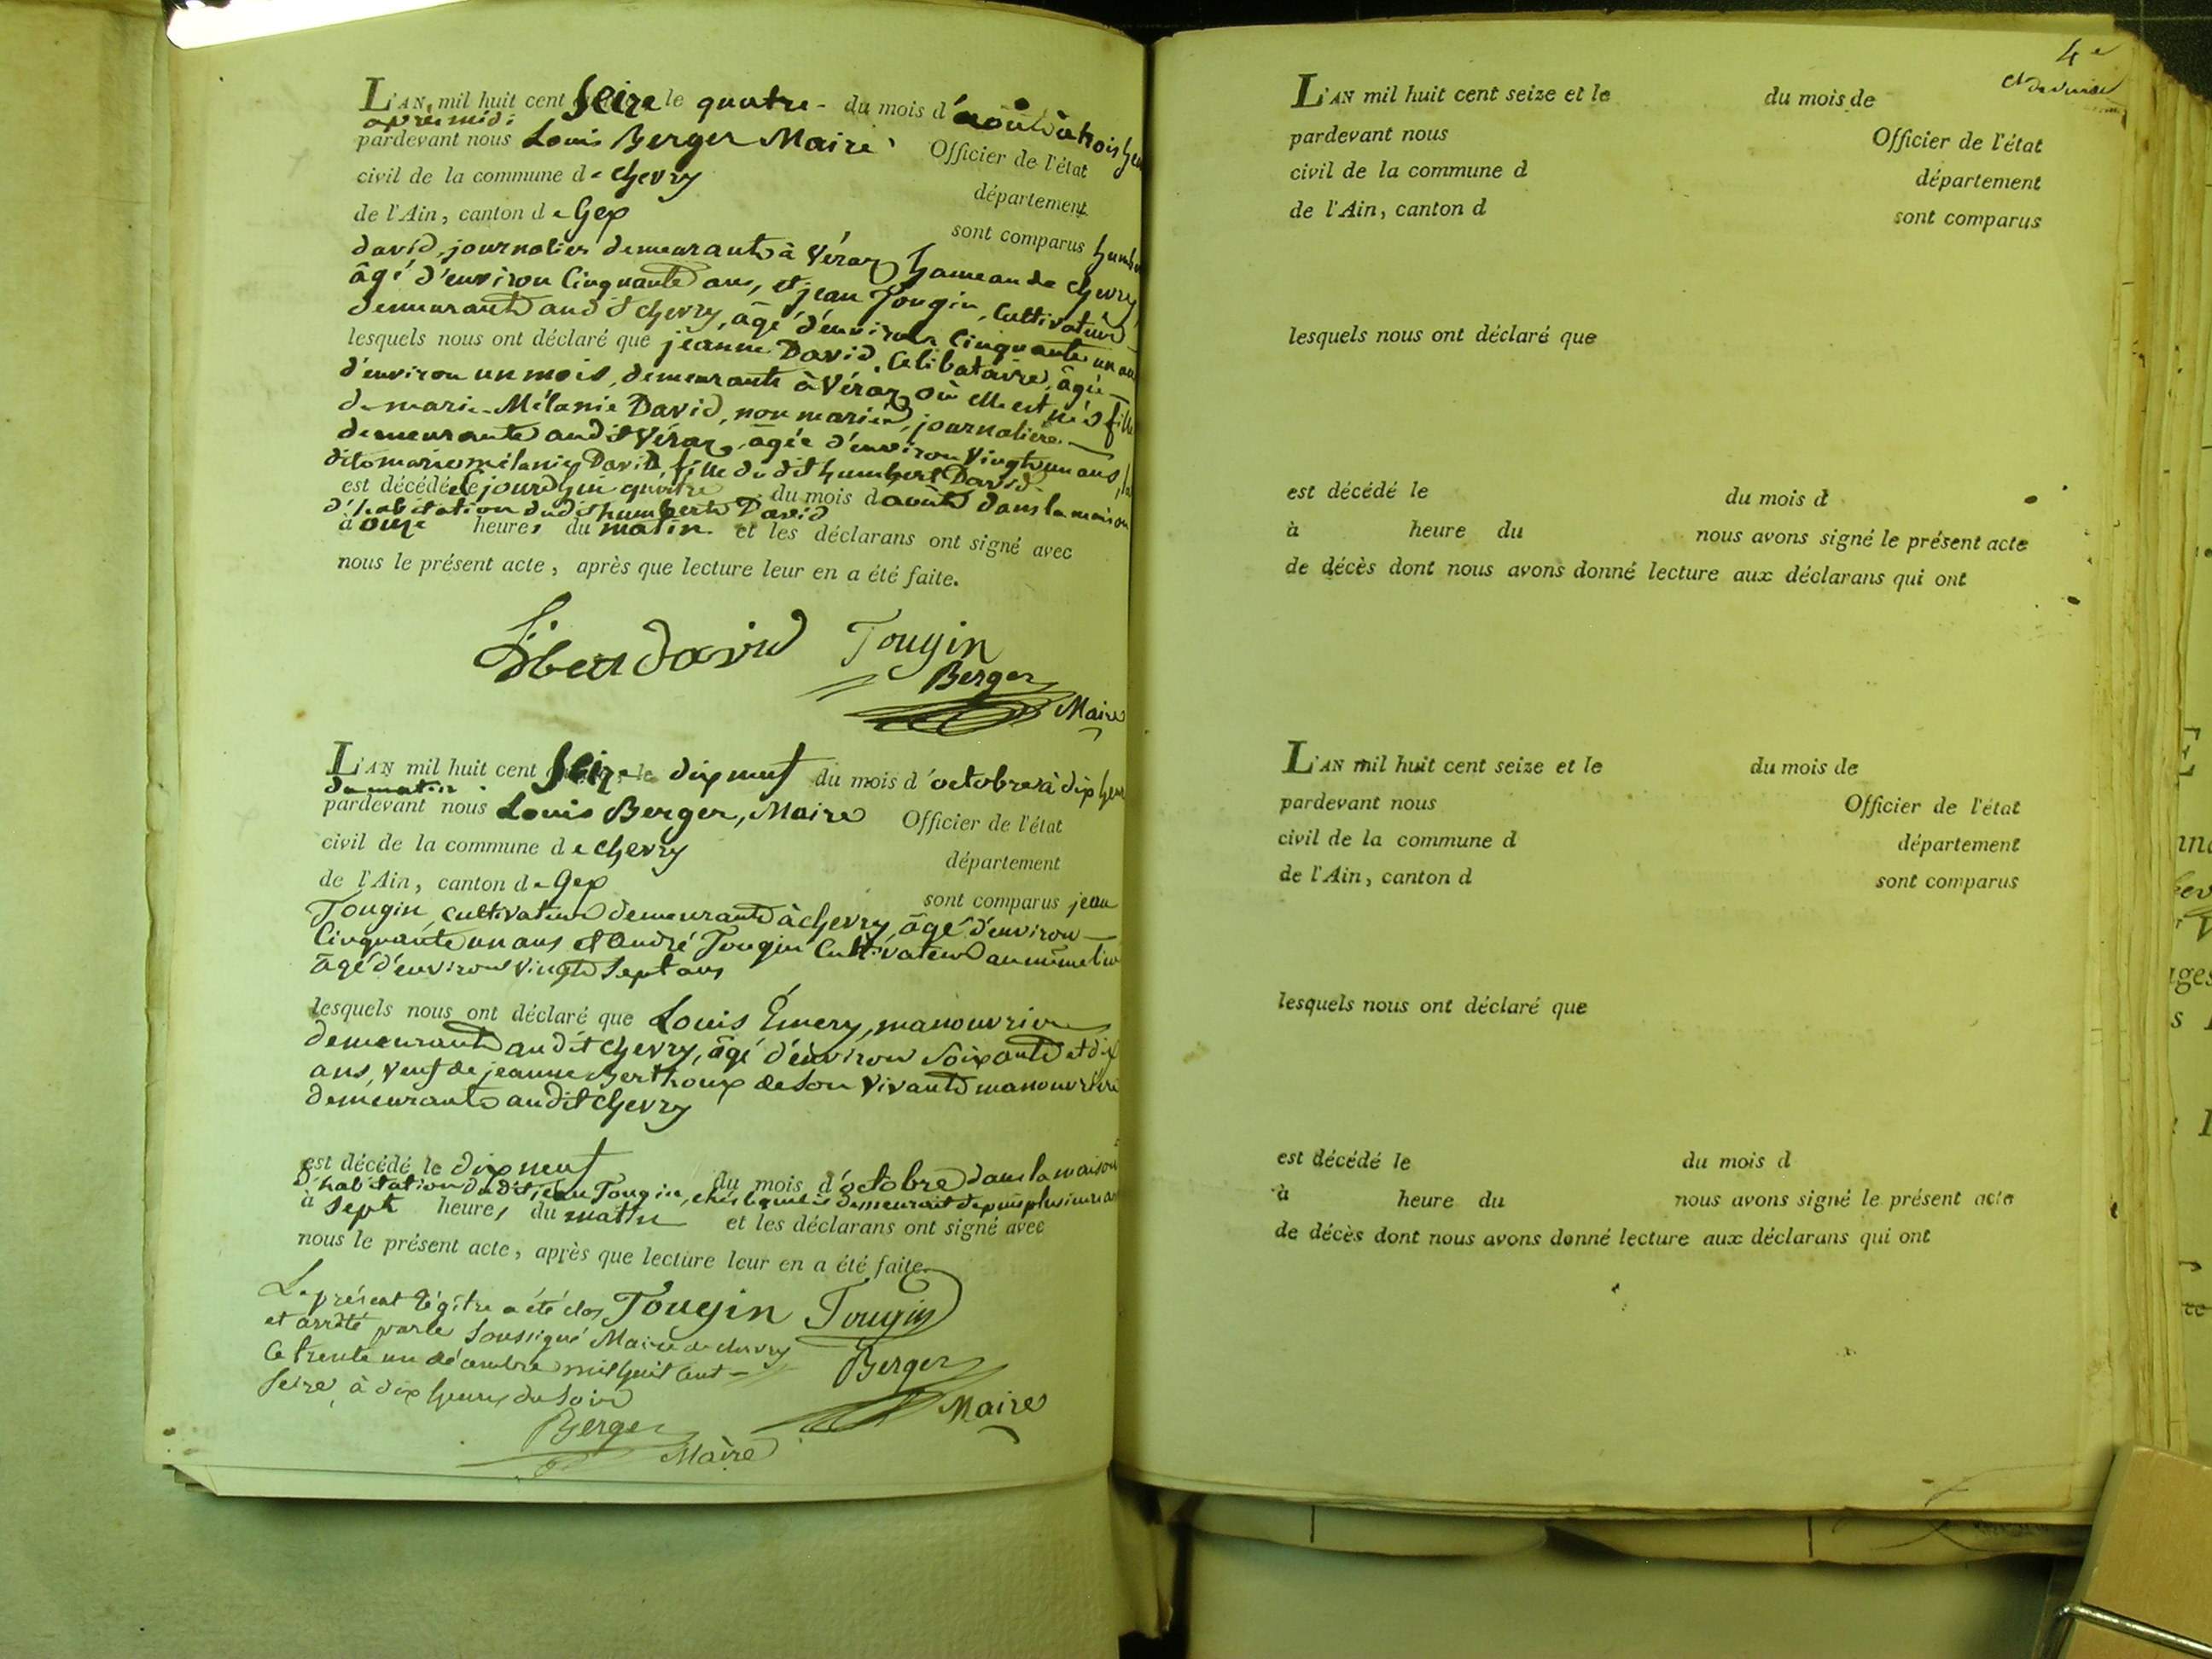 L'AN mil huit cent Seize le quatre du mois d'août à trois heu
après midi
pardevant nous Louis Berger Maire Officier de l'état
civil de la commune de Chevry département
de l'Ain, canton de Gex sont comparus humbe
david, journalier demeurant à Véraz hameau de Chevry,
âgé d'environ Cinquante ans, et jean Tougin, Cultivateur
demeurant audit Chevry, âgé d'environ Cinquante un ans
lesquels nous ont déclaré que jeanne David, Célibataire, âgée
d'environ un mois, demeurante à Véraz où elle est née fille
de marie Mélanie David, non mariée, journalière
demeurante audit Véraz, âgée d'environ Vingt un ans, la
dite marie mélanie David fille du dit humbert David
est décédée le jourd'hui quatre du mois d'août dans la maison
d'habitation dudit humbert David
à onze heures du matin et les déclarans ont signé avec
nous le présent acte, après que lecture leur en a été faite.
david Tougin
Berger
Maire
L'AN mil huit cent Seize le dix neuf du mois d'octobre à dix heu
du matin
pardevant nous Louis Berger, Maire Officier de l'état
civil de la commune de Chevry département
de l'Ain, canton de Gex sont comparus jean
Tougin, cultivateur demeurant à Chevry, âgé d'environ
Cinquante un ans et André Tougin Cultivateur au même lieu
âgé d'environ vingt Sept ans
lesquels nous ont déclaré que Louis Émery, manouvrier
demeurant audit Chevry, âgé d'environ Soixante et dix
ans, veuf de jeanne Berthoux de Son Vivant manouvrière
demeurante audit Chevry
est décédé le dix neuf du mois d'octobre dans la maison
d'habitation dudit jean Tougin, chés lequel il demeurait depuis plusieurs an
à Sept heures du matin et les déclarans ont signé avec
nous le présent acte, après que lecture leur en a été faite.
Le présent Régître a été clos Tougin Tougin
et arrêté par le Soussigné Maire de chevry
Ce trente un décembre mil huit Cent Berger
Seize, à dix heures du Soir Maire
Berger
Maire
4e
et dernier
L'AN mil huit cent seize et le du mois de
pardevant nous Officier de l'état
civil de la commune d département
de l'Ain, canton d sont comparus
lesquels nous ont déclaré que
est décédé le du mois d
à heure du nous avons signé le présent acte
de décès dont nous avons donné lecture aux déclarans qui ont
L'AN mil huit cent seize et le du mois de
pardevant nous Officier de l'état
civil de la commune d département
de l'Ain, canton d sont comparus
lesquels nous ont déclaré que
est décédé le du mois d
à heure du nous avons signé le présent acte
de décès dont nous avons donné lecture aux déclarans qui ont